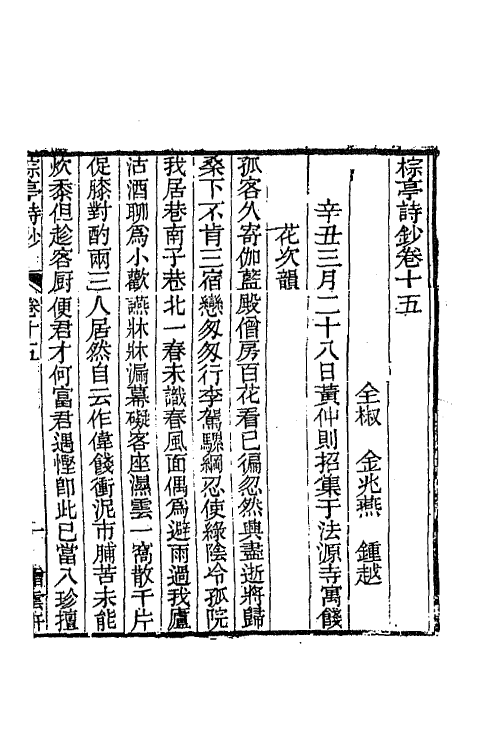 棕亭詩鈔卷十五
全椒　金兆燕　鍾越
辛丑三月二十八日黃仲則招集于法源寺寓餞
花次韻
孤客久寄伽藍殿僧房百花看已徧忽然興盡逝將歸
桑下不肯三宿戀匆匆行李駕騾綱忍使綠陰冷孤院
我居巷南子巷北一春未識春風面偶爲避雨過我廬
沽酒聊爲小歡讌牀牀漏幕礙客座濕雲一窩散千片
促膝對酌兩三人居然自云作偉餞衝泥市脯苦未能
炊黍但趁客厨便君才何富君遇慳即此已當八珍擅
棕亭詩鈔　卷十五　一　贈雲軒